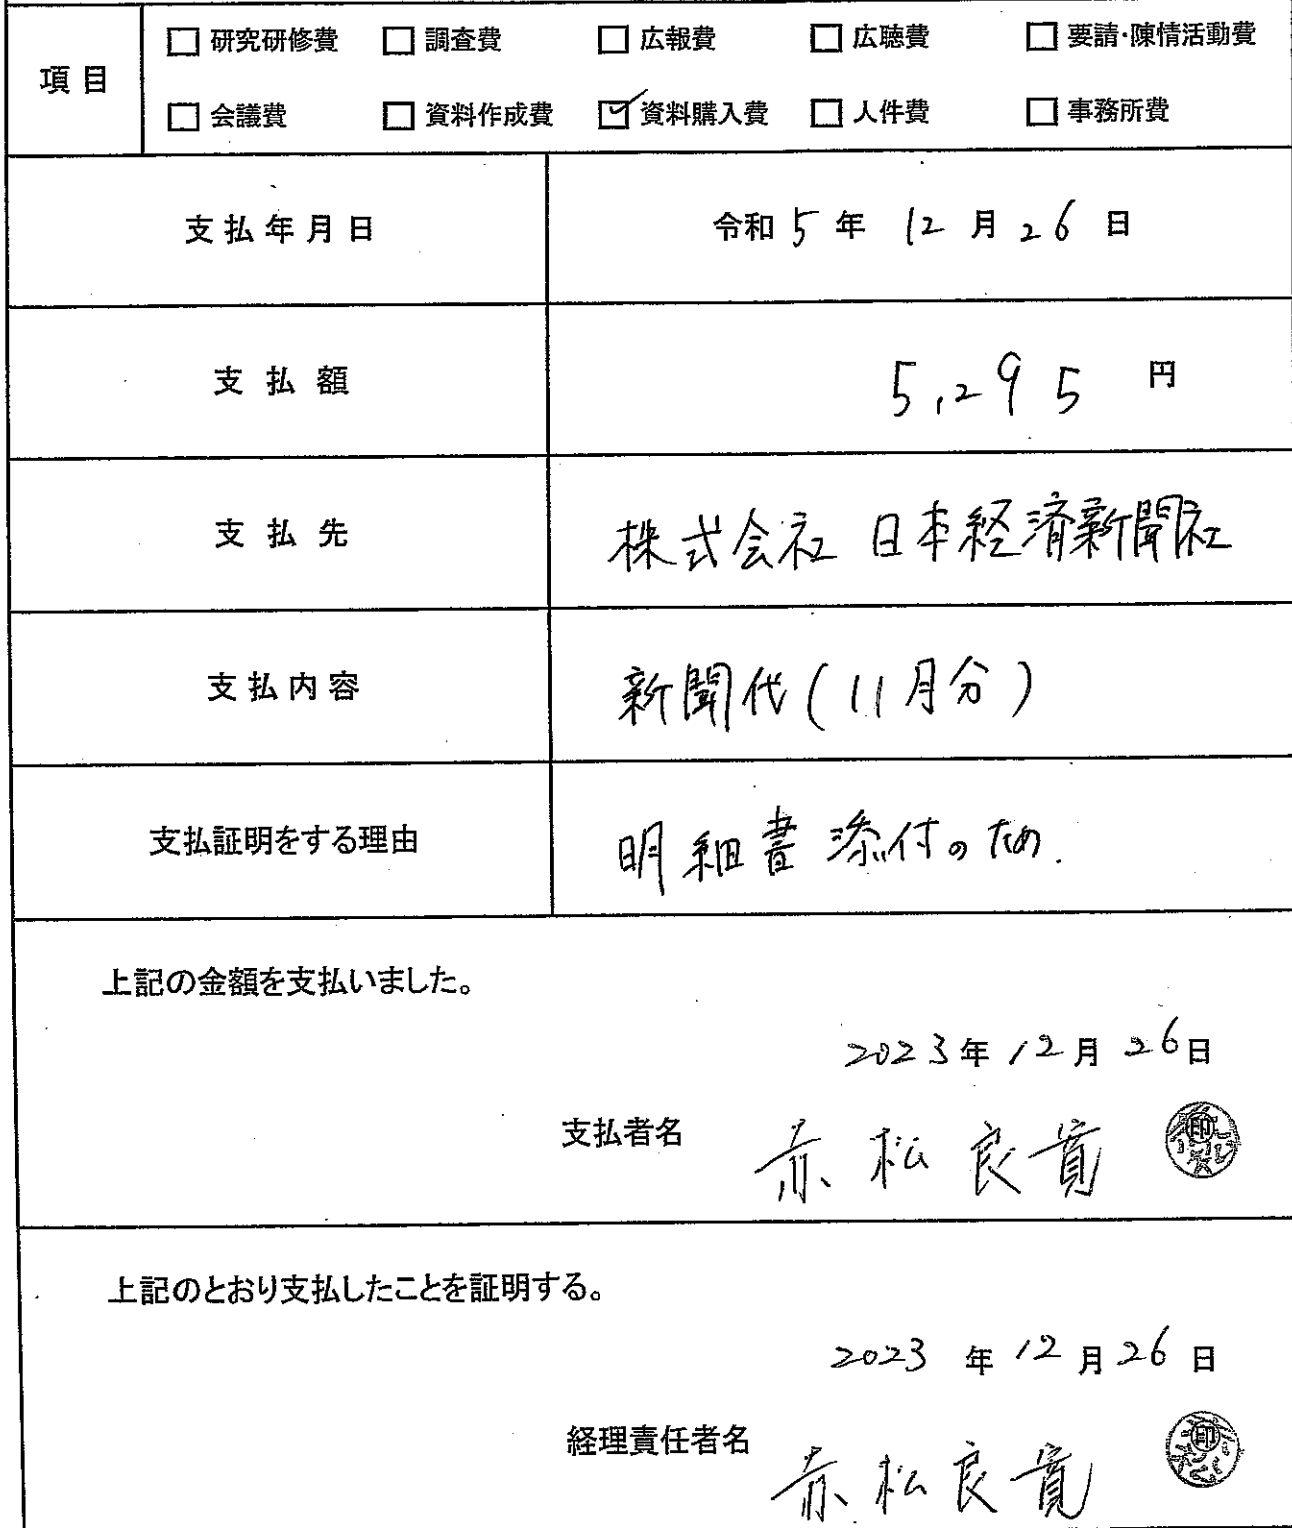 項目
□ 研究研修費 □ 調査費 □ 広報費 □ 広聴費 □ 要請・陳情活動費
□ 会議費 □ 資料作成費 ☑ 資料購入費 □ 人件費 □ 事務所費
支払年月日 令和 5 年 12 月 26 日
支払額 5,295 円
支払先 株式会社 日本経済新聞社
支払内容 新聞代(11月分)
支払証明をする理由 明細書添付のため.
上記の金額を支払いました。
2023年 12月 26日
支払者名 赤松良寛 印
上記のとおり支払したことを証明する。
2023 年 12 月 26 日
経理責任者名 赤松良寛 印